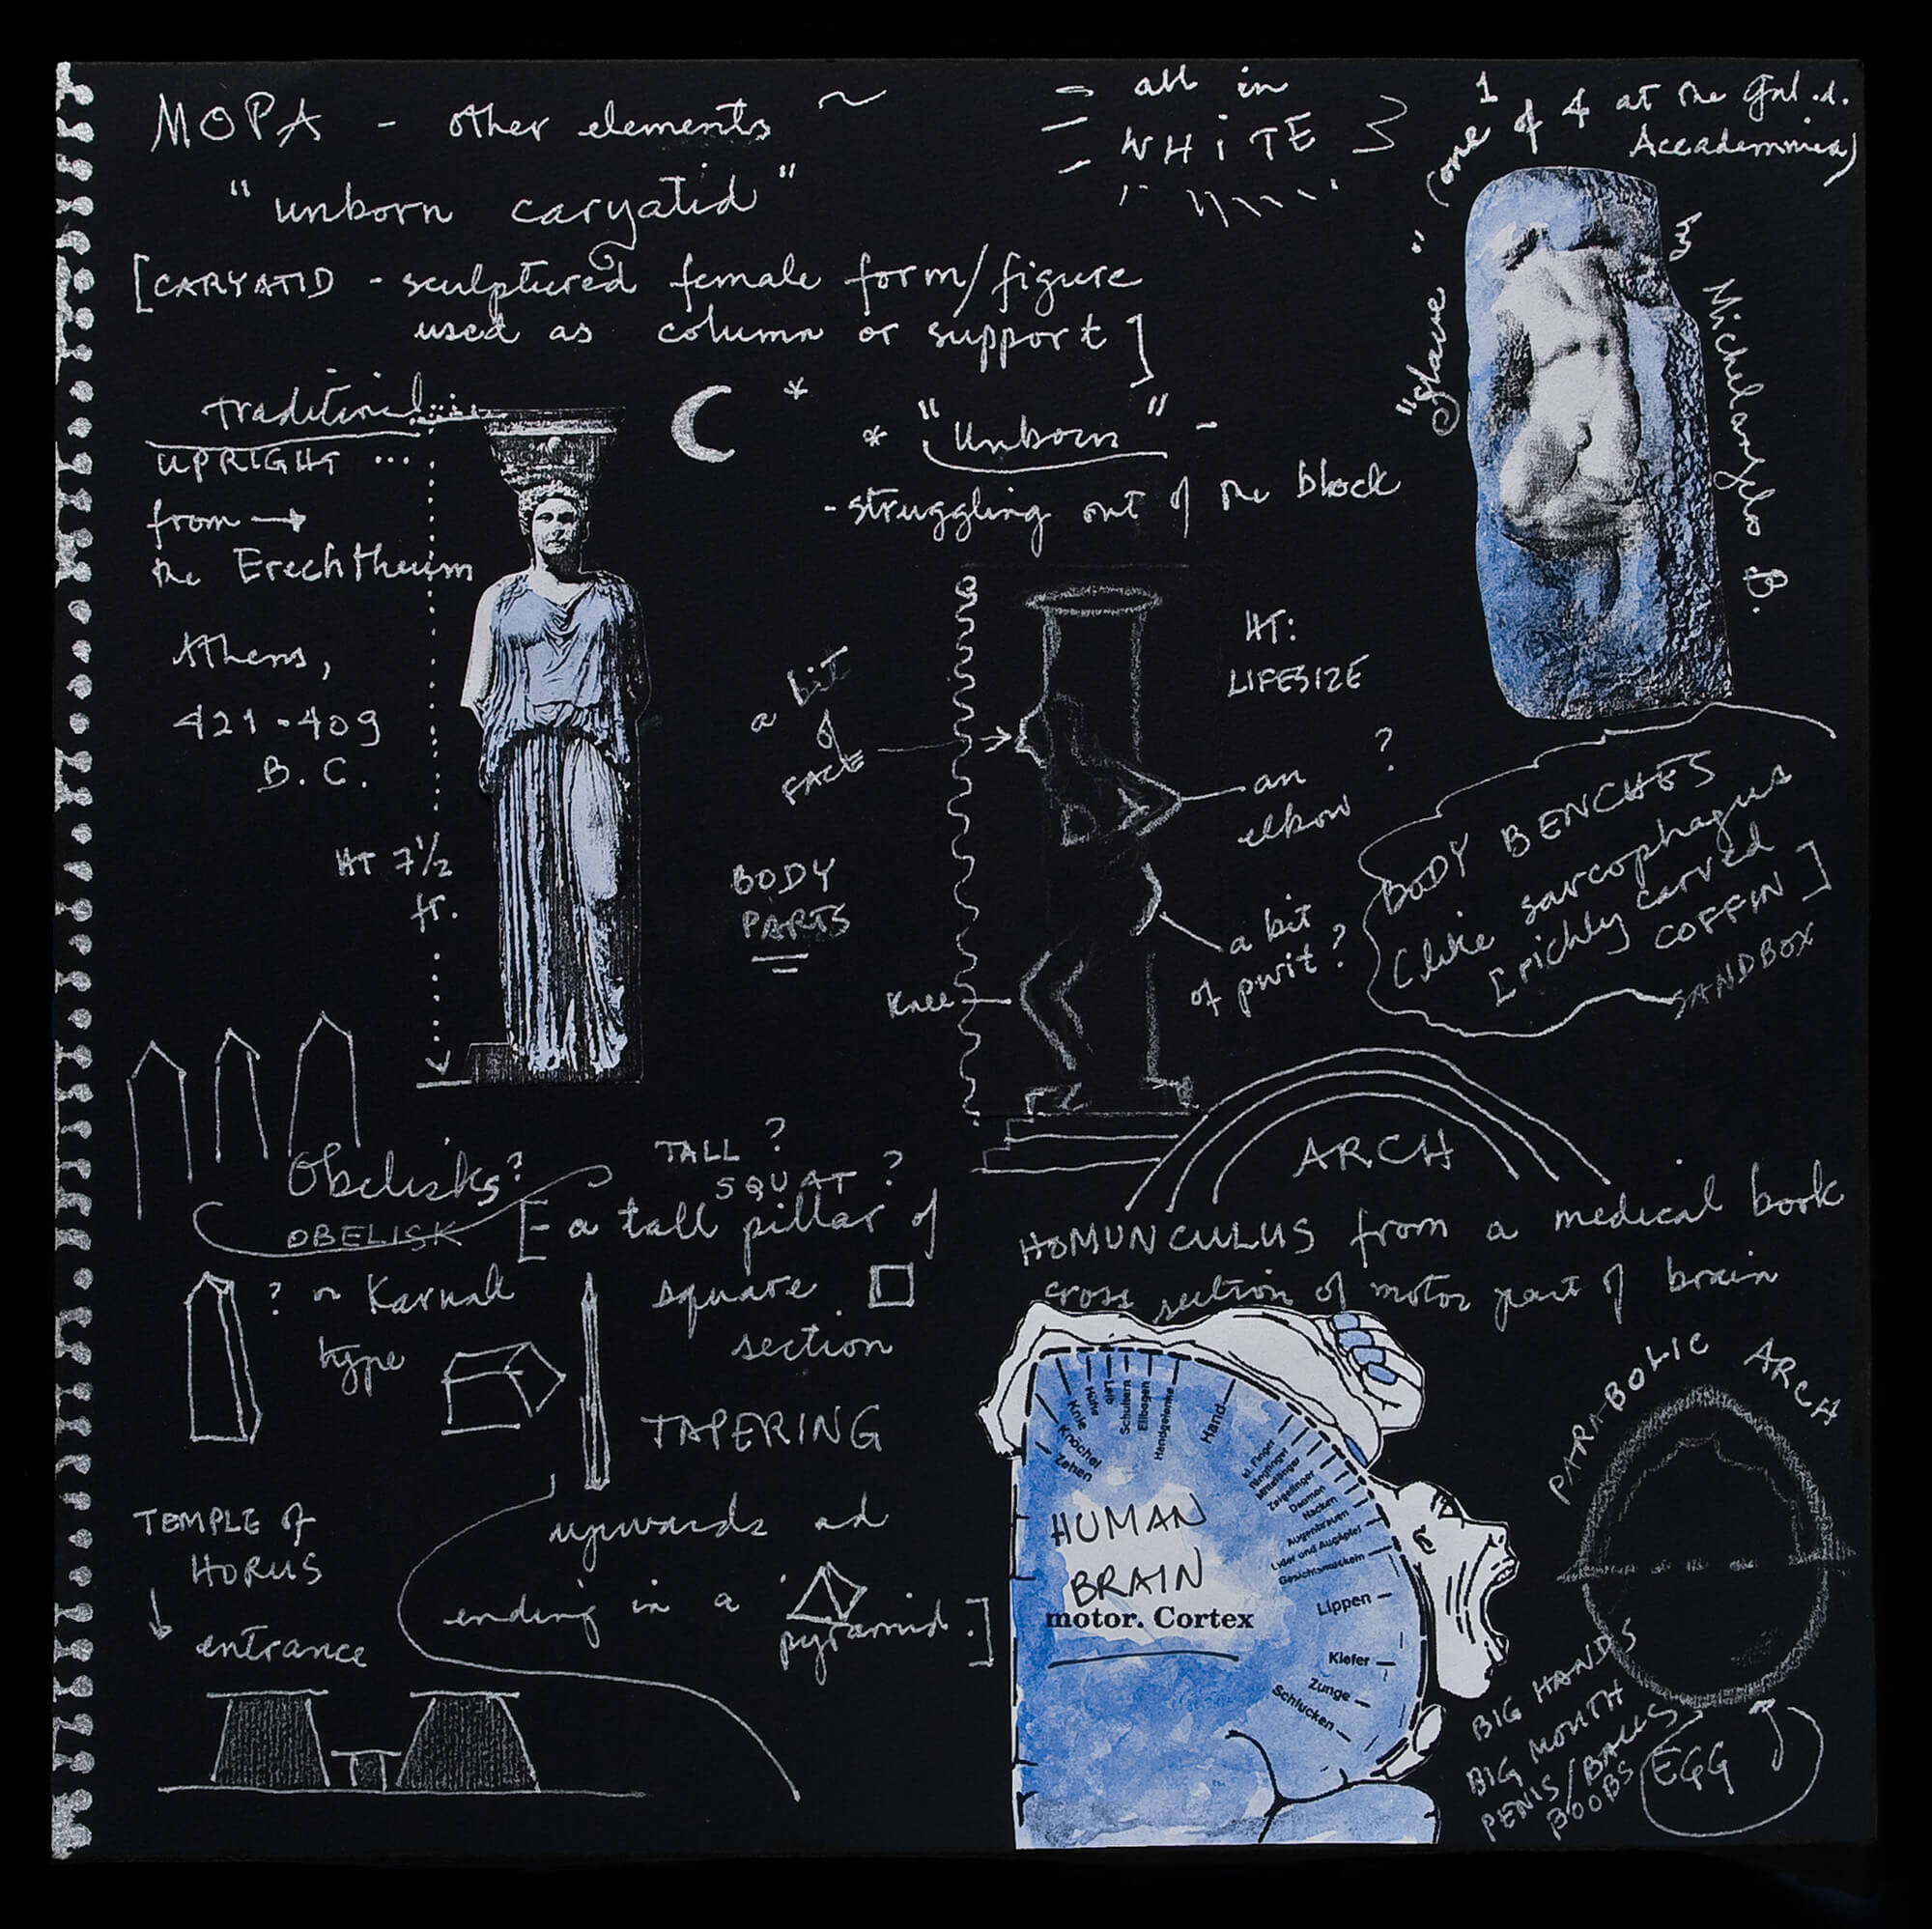 MOPA - other elements ~
"unborn caryatid"
[CARYATID - sculptured female form/figure
used as column or support]
all in
WHITE
(one 1 of 4 at the Gal.d.
Accademmia)
"Slave"
by Michelangelo B.
traditional
UPRIGHT ...
from →
the Erechtheum
Athens,
421-409
B.C.
HT 7½
ft.
*
* "Unborn" -
- struggling out of the block
HT:
LIFESIZE
a bit
of
FACE
an
elbow
?
BODY
PARTS
a bit
of
?
Knee
BODY BENCHES
(like sarcophagus
[richly carved
COFFIN]
SANDBOX
Obelisks?
TALL ?
SQUAT ?
OBELISK [= a tall pillar of
square
section
? or Karnak
type
TAPERING
upwards ad
ending in a
pyramid.]
TEMPLE of
HORUS
↓
entrance
ARCH
HOMUNCULUS from a medical book
cross section of motor part of brain
Zehen
Knöchel
Knie
Hüfte
Leib
Schultern
Ellbogen
Handgelenke
Hand
kl. Finger
Ringfinger
Mittelfinger
Zeigefinger
Daumen
Nacken
Augenbrauen
Lider und Augäpfel
Gesichtsmuskeln
Lippen
Kiefer
Zunge
Schlucken
HUMAN
BRAIN
motor. Cortex
PARABOLIC ARCH
BIG HANDS
BIG MOUTH
PENIS/BALLS
BOOBS
EGG